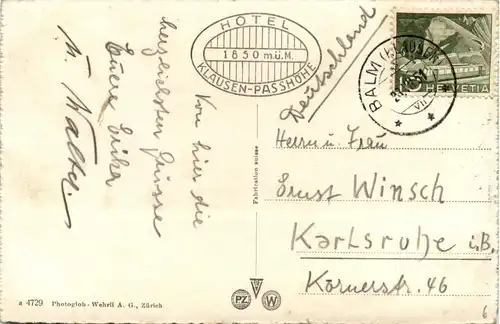 HOTEL
1850 m.ü.M.
KLAUSEN-PASSHÖHE
Von hier die
herzlichsten Grüsse
Euere Erika
u. Walter.
Deutschland
BALM (KLAUSEN)
VII
10 HELVETIA
Herrn u. Frau
Ernst Winsch
Karlsruhe i.B.
Körnerstr. 46
Fabrication suisse
a 4729 Photoglob-Wehrli A. G., Zürich
PZ W
6